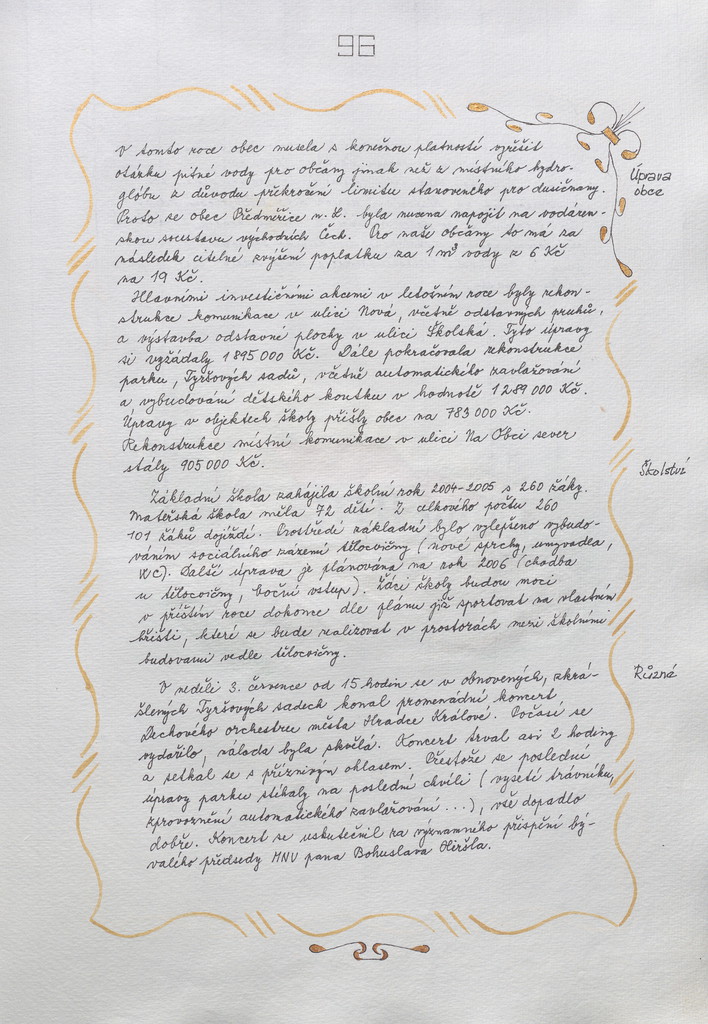 96
V tomto roce obec musela s konečnou platností vyřešit
otázku pitné vody pro občany jinak než z místního hydro-
glóbu z důvodu překročení limitu stanoveného pro dusičnany.
Proto se obec Předměřice n. L. byla nucena napojit na vodáren-
skou soustavu východních Čech. Pro naše občany to má za
následek citelné zvýšení poplatku za 1 m³ vody z 6 Kč
na 19 Kč.
Úprava
obce
Hlavními investičními akcemi v letošním roce byly rekon-
strukce komunikace v ulici Nová, včetně odstavných pruhů,
a výstavba odstavné plochy v ulici Školská. Tyto úpravy
si vyžádaly 1 895 000 Kč. Dále pokračovala rekonstrukce
parku, Tyršových sadů, včetně automatického zavlažování
a vybudování dětského koutku v hodnotě 1 289 000 Kč.
Úpravy v objektech školy přišly obec na 783 000 Kč.
Rekonstrukce místní komunikace v ulici Na Obci sever
stály 905 000 Kč.
Školství
Základní škola zahájila školní rok 2004-2005 s 260 žáky.
Mateřská škola měla 72 dětí. Z celkového počtu 260
101 žáků dojíždí. Prostředí základní bylo vylepšeno vybudo-
váním sociálního zázemí tělocvičny (nové sprchy, umyvadla,
WC). Další úprava je plánována na rok 2006 (chodba
u tělocvičny, boční vstup). Žáci školy budou moci
v příštím roce dokonce dle plánu již sportovat na vlastním
hřišti, které se bude realizovat v prostorách mezi školními
budovami vedle tělocvičny.
Různé
V neděli 3. července od 15 hodin se v obnovených, zkrá-
šlených Tyršových sadech konal promenádní koncert
Dechového orchestru města Hradce Králové. Počasí se
vydařilo, nálada byla skvělá. Koncert trval asi 2 hodiny
a setkal se s příznivým ohlasem. Přestože se poslední
úpravy parku stíhaly na poslední chvíli (vysetí trávníku,
zprovoznění automatického zavlažování ...), vše dopadlo
dobře. Koncert se uskutečnil za významného přispění bý-
valého předsedy MNV pana Bohuslava Hiršla.